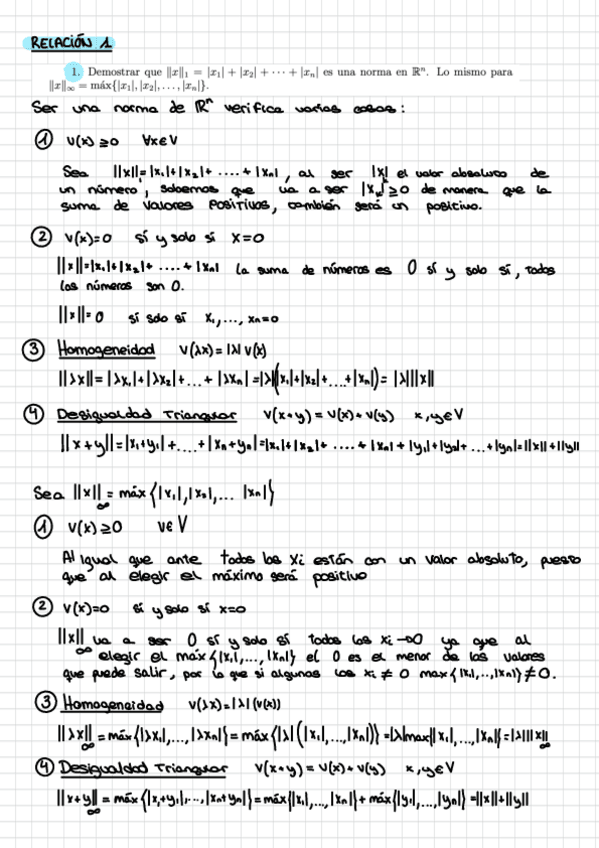 RELACIÓN 1
1. Demostrar que ‖x‖₁ = |x₁| + |x₂| + ··· + |xₙ| es una norma en ℝⁿ. Lo mismo para
‖x‖∞ = máx{|x₁|, |x₂|, . . . , |xₙ|}.
Ser una norma de ℝⁿ verifica varias cosas:
① v(x) ≥0 ∀x∈V
Sea ||x||=|x₁|+|x₂|+ ....+|xₙ|, al ser |x| el valor absoluto de
un número, sabemos que va a ser |xₙ|≥0 de manera que la
suma de valores positivos, también será un positivo.
② v(x)=0 sí y solo si x=0
||x||=|x₁|+|x₂|+ ....+|xₙ| la suma de números es 0 sí y solo sí, todos
los números son 0.
||x||=0 sí solo sí x₁,..., xₙ=0
③ Homogeneidad v(λx)=|λ| v(x)
||λx||=|λx₁|+|λx₂|+...+|λxₙ|=|λ|(|x₁|+|x₂|+...+|xₙ|)=|λ|||x||
④ Desigualdad Triangular v(x+y) = v(x)+v(y) x,y∈V
||x+y||=|x₁+y₁|+....+|xₙ+yₙ|=|x₁|+|x₂|+ ....+|xₙ|+|y₁|+|y₂|+...+|yₙ|=||x||+||y||
Sea ||x||∞ = máx {|x₁|,|x₂|,... |xₙ|}
① v(x) ≥0 v∈V
Al igual que ante todos los xi están con un valor absoluto, puesto
que al elegir el máximo será positivo
② v(x)=0 sí y solo sí x=0
||x||∞ va a ser 0 sí y solo sí todos los xi→0 ya que al
elegir el máx{|x₁|,..., |xₙ|} el 0 es el menor de los valores
que puede salir, por lo que si algunos los xi ≠ 0 max{|x₁|,..,|xₙ|} ≠0.
③ Homogeneidad v(λx)=|λ|(v(x))
||λx||∞ = máx{|λx₁|,...,|λxₙ|}=máx{|λ|(|x₁|,...,|xₙ|)} =|λ|max{|x₁|,...,|xₙ|}=|λ|||x||∞
④ Desigualdad Triangular v(x+y) = v(x)+v(y) x,y∈V
||x+y||∞ = máx{|x₁+y₁|,...,|xₙ+yₙ|}=máx{|x₁|,...,|xₙ|}+máx{|y₁|,...,|yₙ|} =||x||+||y||